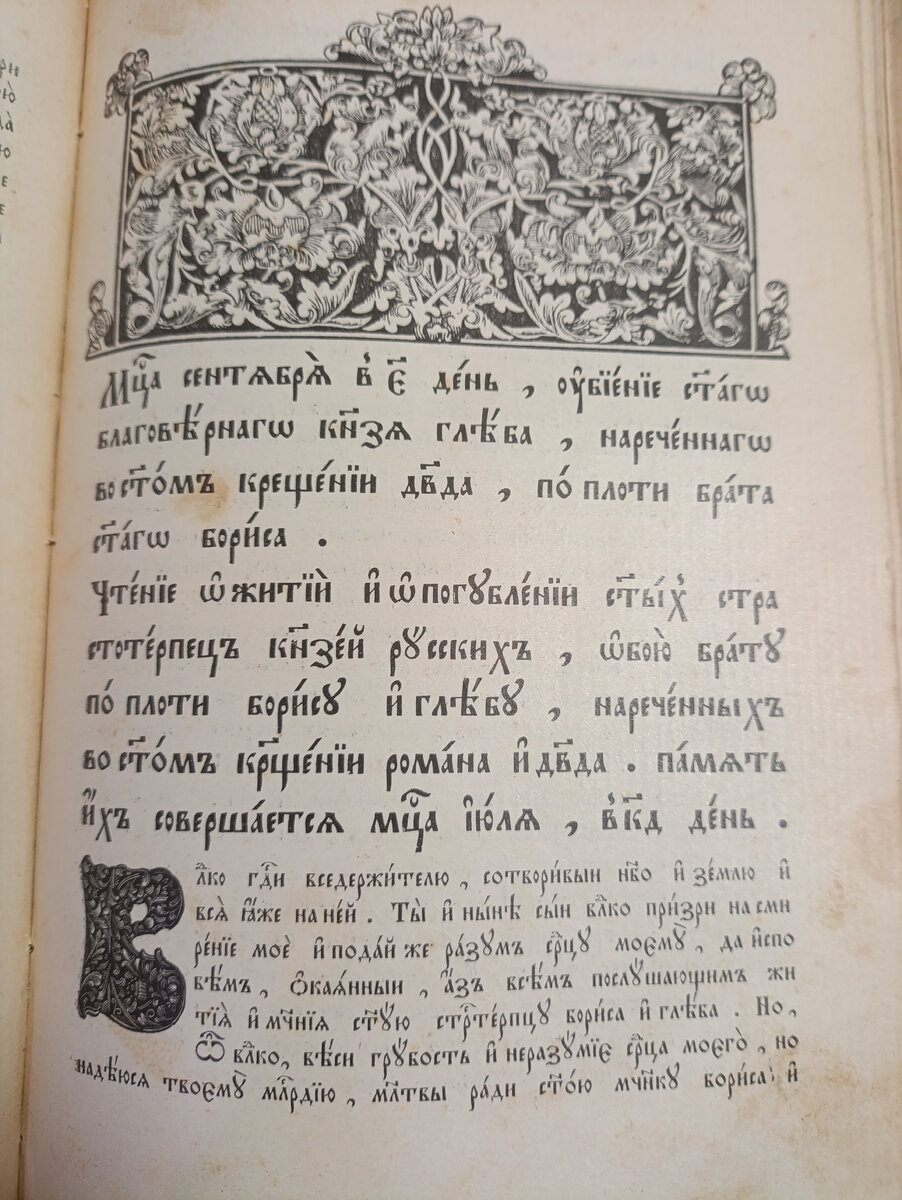 рїе
їю̀
ла̀
ю
е
е
Мц҃а сентѧбрѧ̀ в҆ є҃ де́нь , ᲂу҆бїе́нїе ст҃а́гѡ
благовѣ́рнагѡ кн҃зѧ глѣ́ба , нарече́ннагѡ
во ст҃о́мъ креще́нїи дв҃да , по́ плоти бра́та
ст҃а́гѡ бори́са .
Чте́нїе ѡ҆ житїѝ и҆ ѡ҆ погꙋбле́нїи ст҃ы́х҆ стра
стоте́рпецъ кн҃зе́й рꙋ́сских̾ъ , ѡ҆бою̀ бра́тꙋ
по́ плоти бори́сꙋ и҆ глѣ́бꙋ , нарече́нныхъ
во ст҃о́мъ кр҃ще́нїи рома́на и҆ дв҃да . па́мѧть
и҆́хъ соверша́етсѧ мц҃а і҆ю́лѧ , в҆ к҃д де́нь .
Влⷣко гдⷭ҇и вседержи́телю , сотвори́выи нб҃о и҆ зе́млю и҆
всѧ̀ ꙗ҆́же на не́й . Ты̀ и҆ ны́нѣ сы́н влⷣко при́зри на сми
ре́нїе моѐ и҆ пода́й же ра́зꙋмъ срⷣцꙋ моемꙋ̀ , да и҆спо
вѣ́мъ , ѻ҆каѧ́нныи , а҆́зъ всѣ́мъ послꙋ́шающимъ жи
тїѧ̀ и҆ мч҃нїѧ ст҃ꙋ́ю стрⷭ҇те́рпцꙋ бори́са и҆ глѣ́ба . Но ,
ѽ влⷣко , вѣ́си грꙋ́бость и҆ неразꙋ́мїе срⷣца моегѡ̀ , но
надѣ́юсѧ твоемꙋ̀ млⷭ҇рдїю , мл҃твы ра́ди ст҃о́ю мч҃нкꙋ бори́са и҆